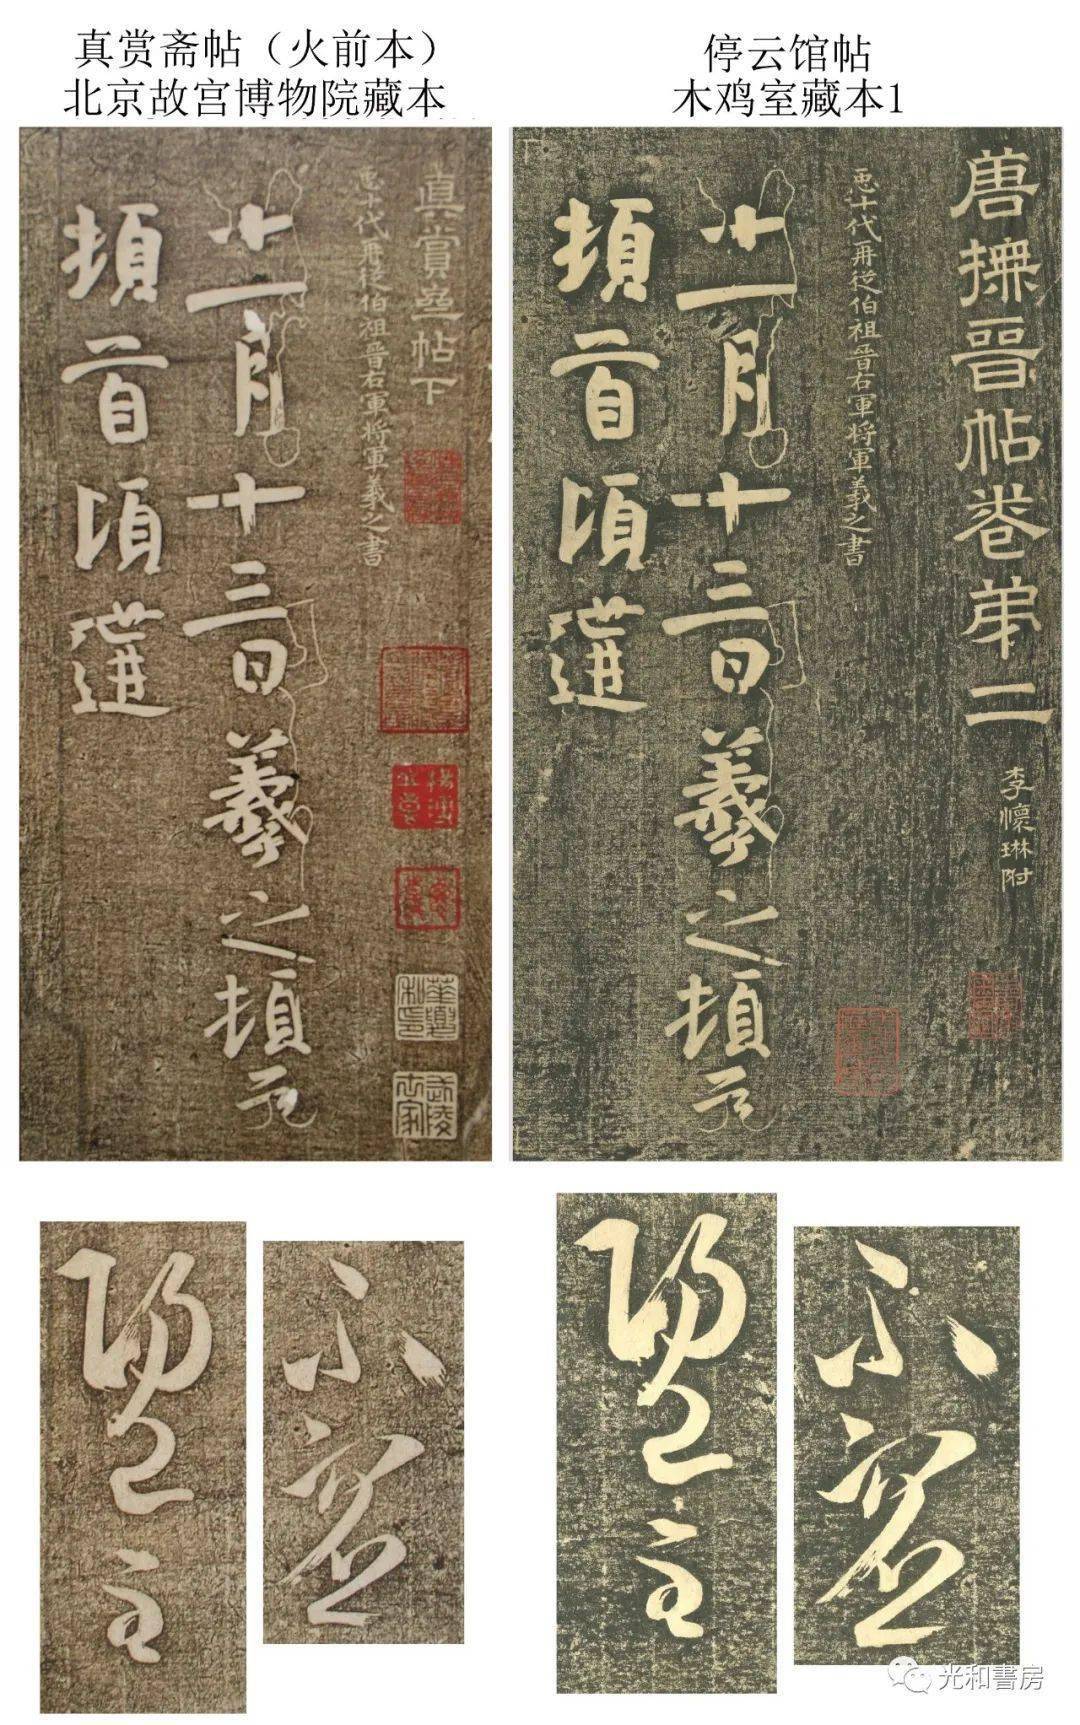 真赏斋帖（火前本）
北京故宫博物院藏本
真賞齋帖下
十代再從伯祖晉右軍將軍羲之書
十一月十三日羲之頓首
頓首頃遘
停云馆帖
木鸡室藏本1
唐撫晉帖卷弟二
李懷琳附
十代再從伯祖晉右軍將軍羲之書
十一月十三日羲之頓首
頓首頃遘
光和書房